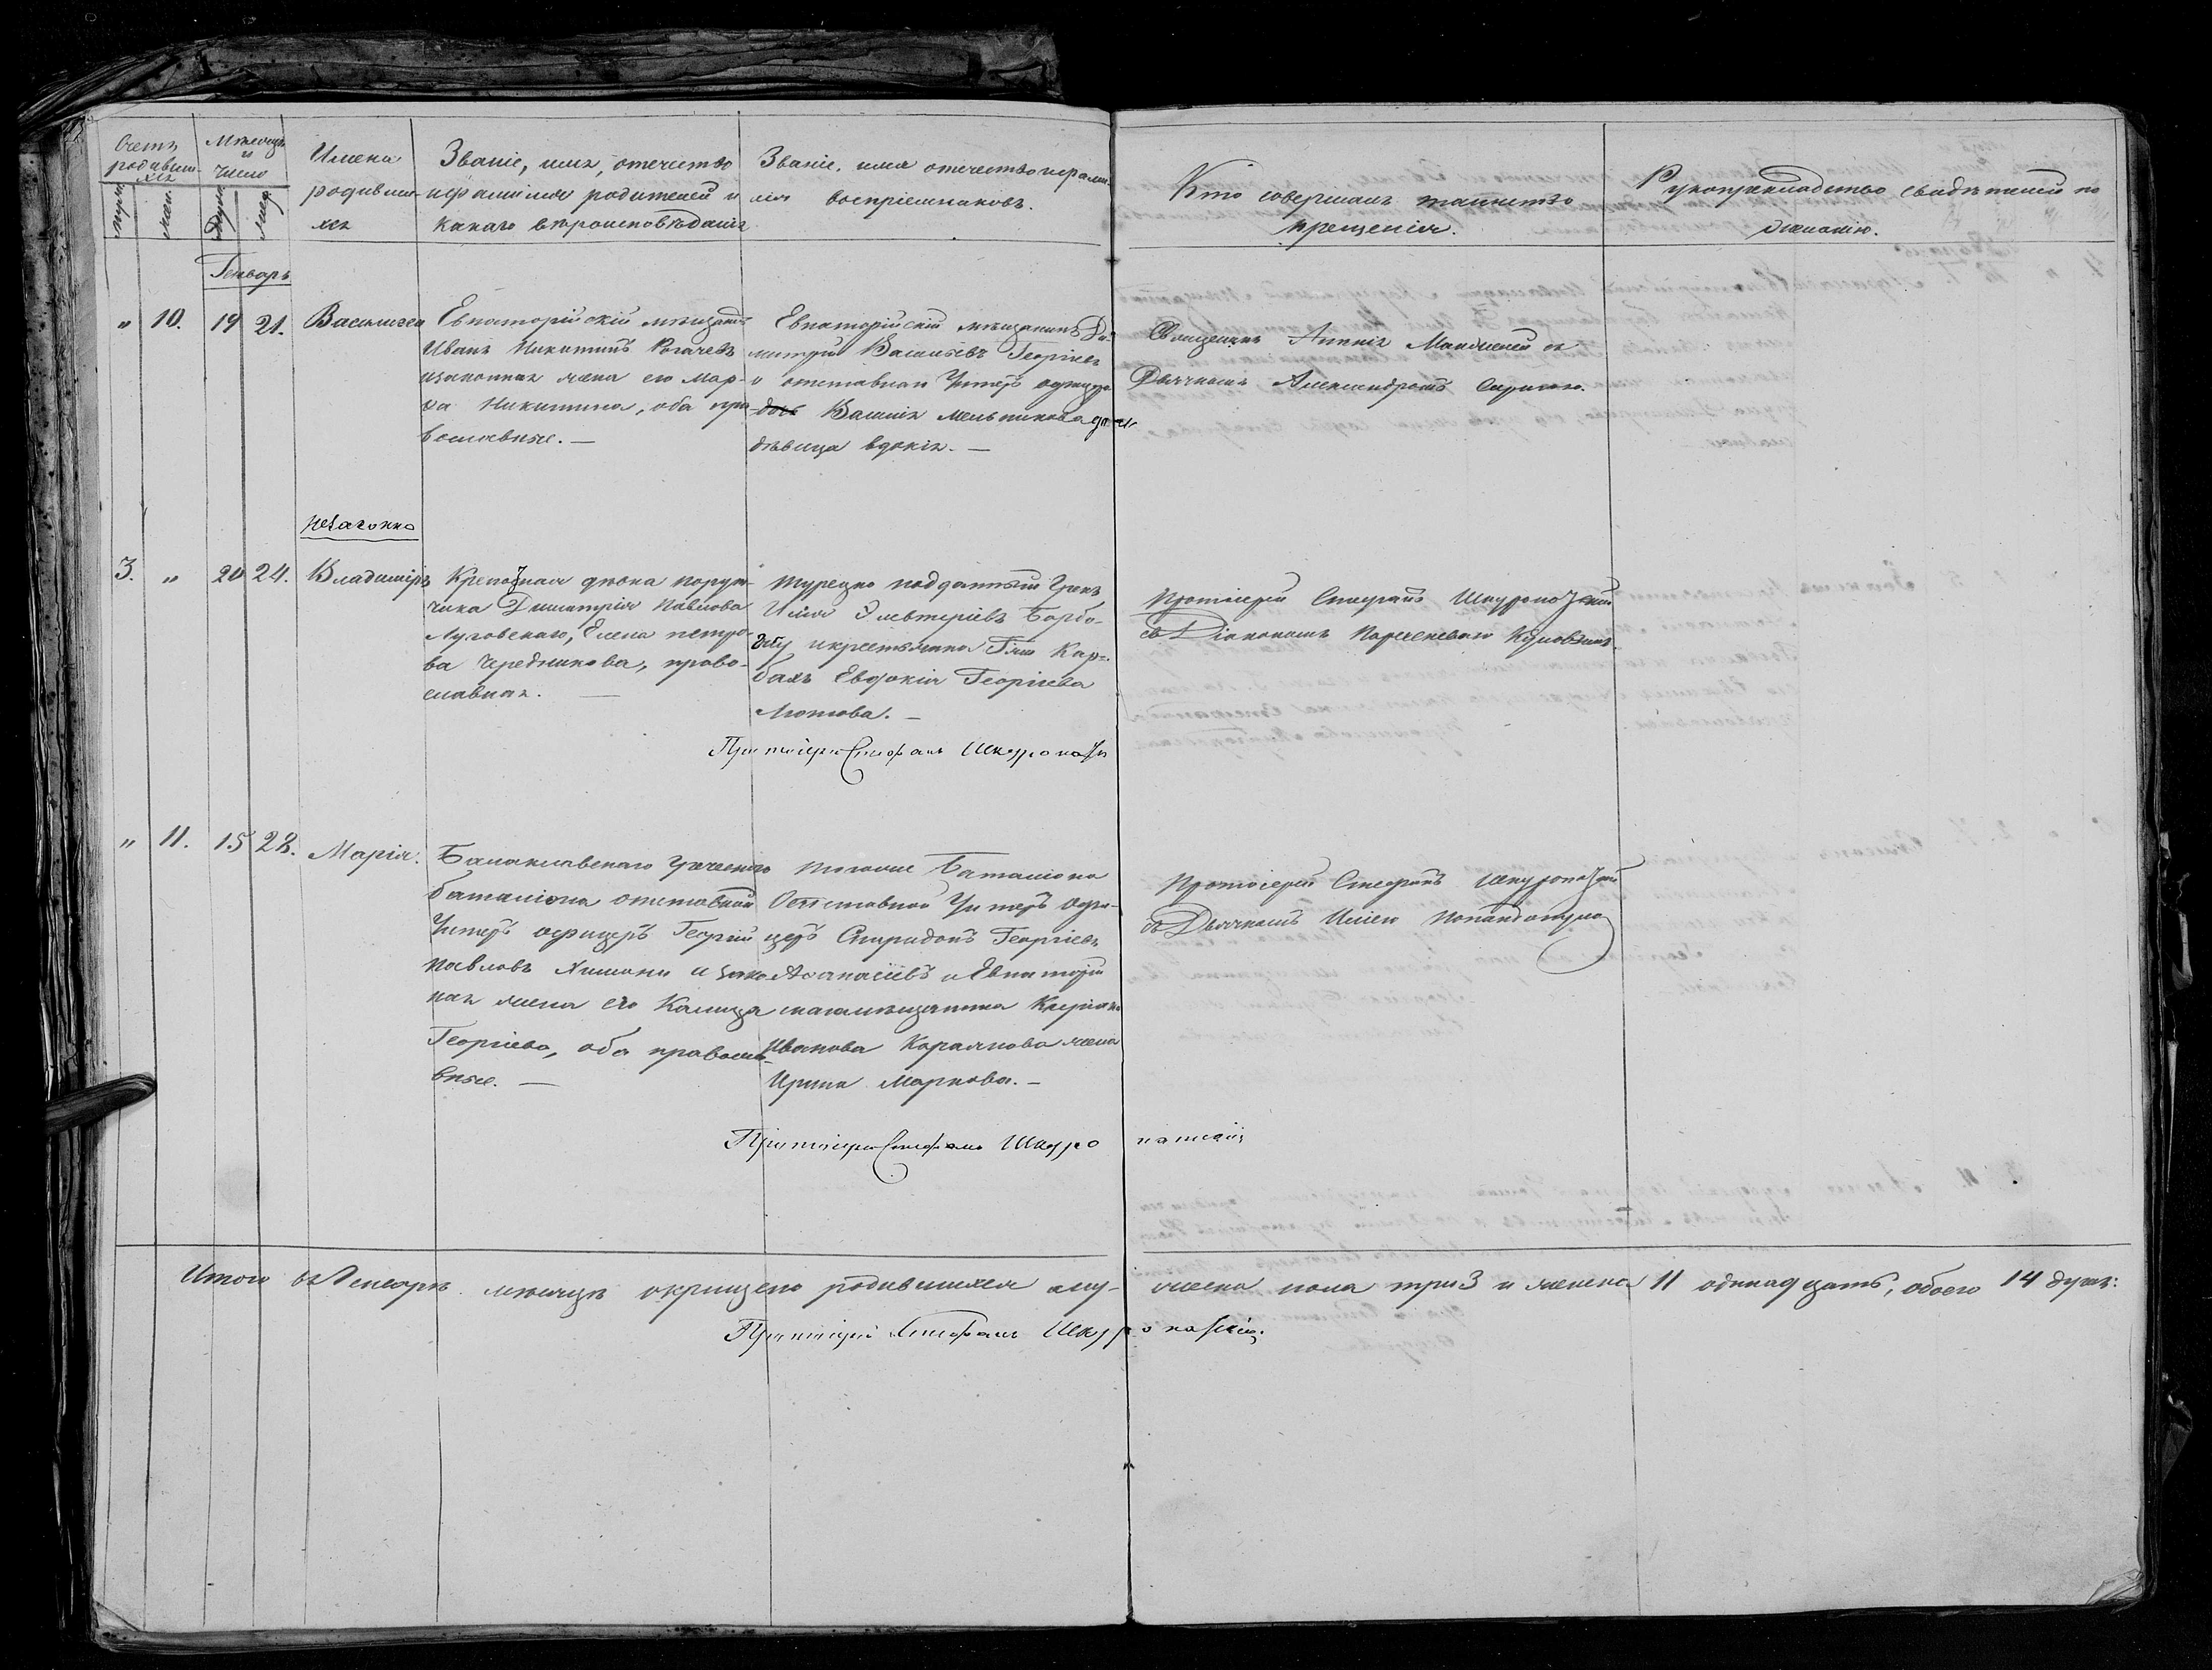 Счетъ родившихся
Мѣсяцъ и число
Имена родившихся
Званіе, имя, отечество и фамилія родителей и какаго вѣроисповѣданія
Званіе, имя отечество и фамилія воспріемниковъ.
Кто совершалъ таинство крещенія.
Рукоприкладство свидѣтелей по желанію.
Муж. Жен.
Генварь
" 10. 19 21. Василиса
Евпаторійскій мѣщанинъ
Иванъ Никитинъ Рогачевъ
и законная жена его Мар-
ѳа Никитина, оба пра-
вославные. —
Евпаторійскій мѣщанинъ Ди-
митрій Васильевъ Георгіев
и отставнаго Унтеръ офицера
Василія Мельникова дочь
дѣвица Евдокія. —
Священникъ Манджелей съ
Дьячкомъ Александромъ
Незаконно
3. " 20 24. Владиміръ
Крепостная дюка порут-
чика Димитрія Павлова
Луговскаго, Елена петро-
ва Чередникова, право-
славная. —
турецко подданный Грекъ
Илья Элевтеріевъ Барбо-
и крестьянка Гжи Кар-
Евдокія Георгіева
Лютова. —
Протоіерей Стефанъ Шкуропатскій
съ Діакономъ
Протоіерей Стефанъ Шкуропат
" 11. 15 28. Марія.
Балаклавскаго Греческаго
баталіона отставной
Унтеръ офицеръ Георгій
Павловъ и закон
ная жена его Калица
Георгіева, оба правосла-
вные. —
Тогоже Баталіона
Отставной Унтеръ офи-
церъ Спиридонъ Георгіевъ
Аѳанасіевъ и Евпаторій
скаго мѣщанина
Иванова жена
Ирина Маркова. —
Протоіерей Стефанъ Шкуропатскій
съ Дьячкомъ Иліею Попандопуло
Протоіерей Стефанъ Шкуропатскій
Итого въ Генварѣ мѣсяцѣ окрищено родившихся му-
жеска пола три 3 и женска 11 одинадцать, обоего 14 душъ:
Протоіерей Стефанъ Шкуропатскій.